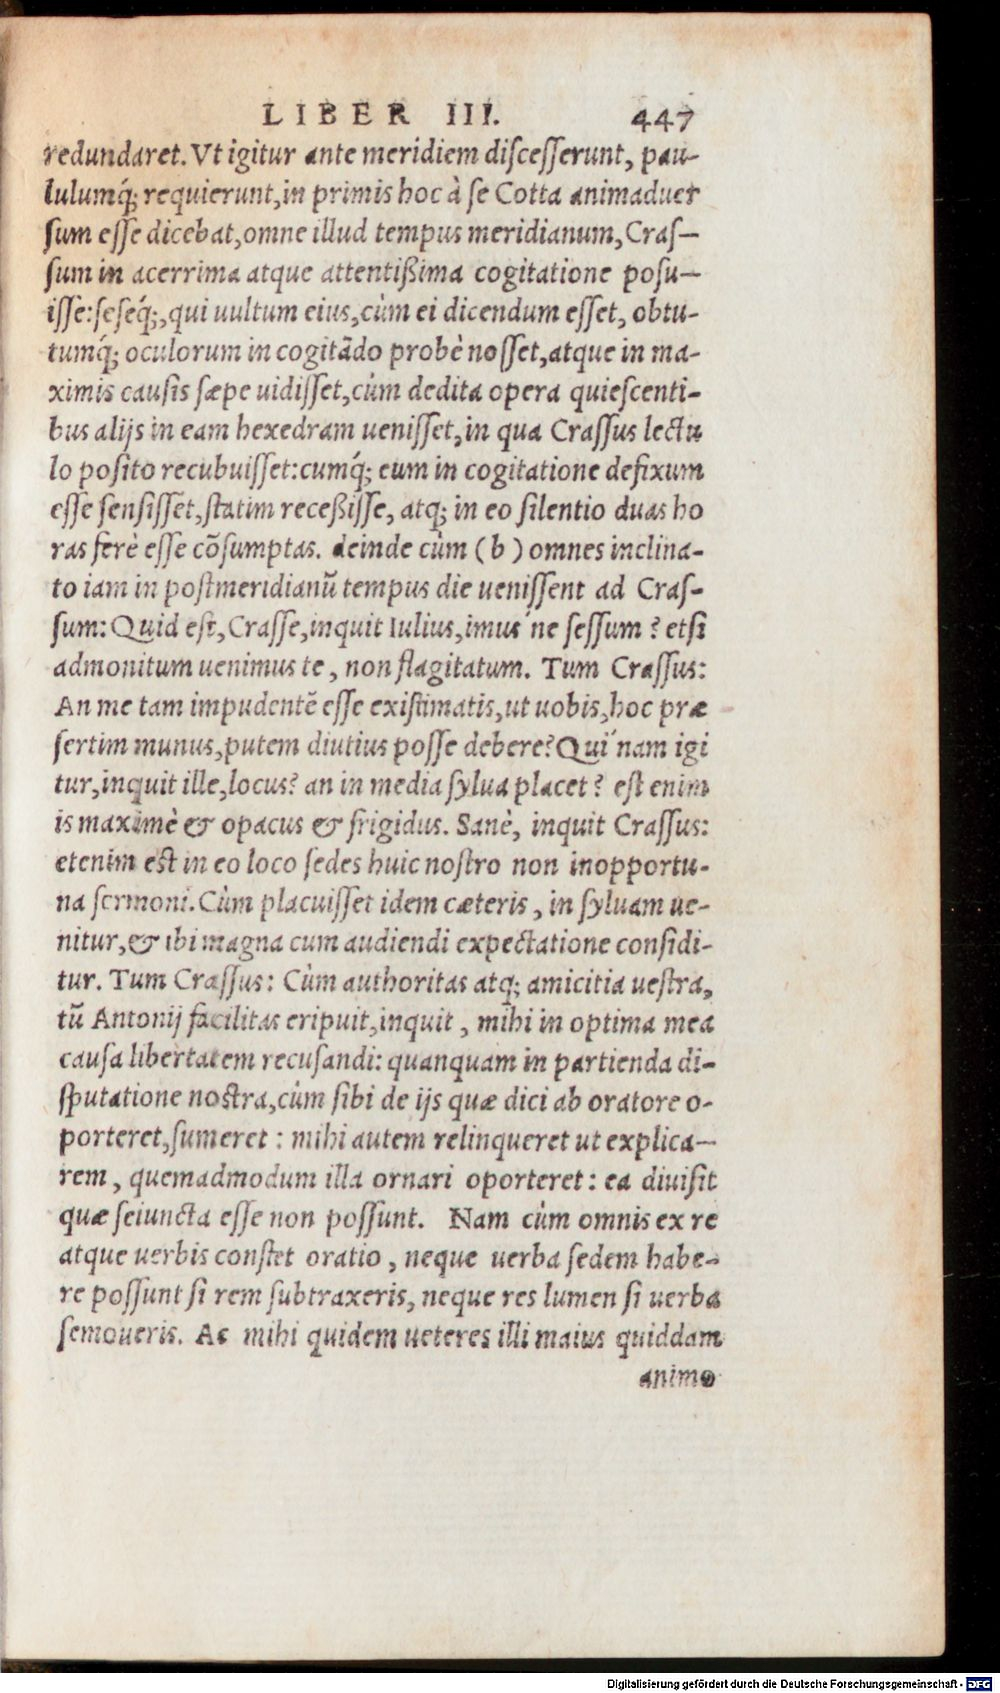 LIBER III. 447
redundaret. Vt igitur ante meridiem diſceſſerunt, pau-
lulumq́; requierunt, in primis hoc à ſe Cotta animaduer
ſum eſſe dicebat, omne illud tempus meridianum, Craſ-
ſum in acerrima atque attentißima cogitatione poſu-
iſſe: ſeſeq́;, qui uultum eius, cùm ei dicendum eſſet, obtu-
tumq́; oculorum in cogitãdo probè noſſet, atque in ma-
ximis cauſis ſæpe uidiſſet, cùm dedita opera quieſcenti-
bus alijs in eam hexedram ueniſſet, in qua Craſſus lectu
lo poſito recubuiſſet: cumq́; eum in cogitatione defixum
eſſe ſenſiſſet, ſtatim receßiſſe, atq; in eo ſilentio duas ho
ras ferè eſſe cõſumptas. deinde cùm (b) omnes inclina-
to iam in poſtmeridianũ tempus die ueniſſent ad Craſ-
ſum: Quid eſt, Craſſe, inquit Iulius, imus´ne ſeſſum? etſi
admonitum uenimus te, non flagitatum. Tum Craſſus:
An me tam impudentẽ eſſe exiſtimatis, ut uobis, hoc præ
ſertim munus, putem diutius poſſe debere? Qui´nam igi
tur, inquit ille, locus? an in media ſylua placet? eſt enim
is maximè & opacus & frigidus. Sanè, inquit Craſſus:
etenim eſt in eo loco ſedes huic noſtro non inopportu-
na ſermoni. Cùm placuiſſet idem cæteris, in ſyluam ue-
nitur, & ibi magna cum audiendi expectatione conſidi-
tur. Tum Craſſus: Cùm authoritas atq; amicitia ueſtra,
tũ Antonij facilitas eripuit, inquit, mihi in optima mea
cauſa libertatem recuſandi: quanquam in partienda di-
ſputatione noſtra, cùm ſibi de ijs quæ dici ab oratore o-
porteret, ſumeret: mihi autem relinqueret ut explica-
rem, quemadmodum illa ornari oporteret: ea diuiſit
quæ ſeiuncta eſſe non poſſunt. Nam cùm omnis ex re
atque uerbis conſtet oratio, neque uerba ſedem habe-
re poſſunt ſi rem ſubtraxeris, neque res lumen ſi uerba
ſemoueris. Ac mihi quidem ueteres illi maius quiddam
animo
Digitalisierung gefördert durch die Deutsche Forschungsgemeinschaft - DFG